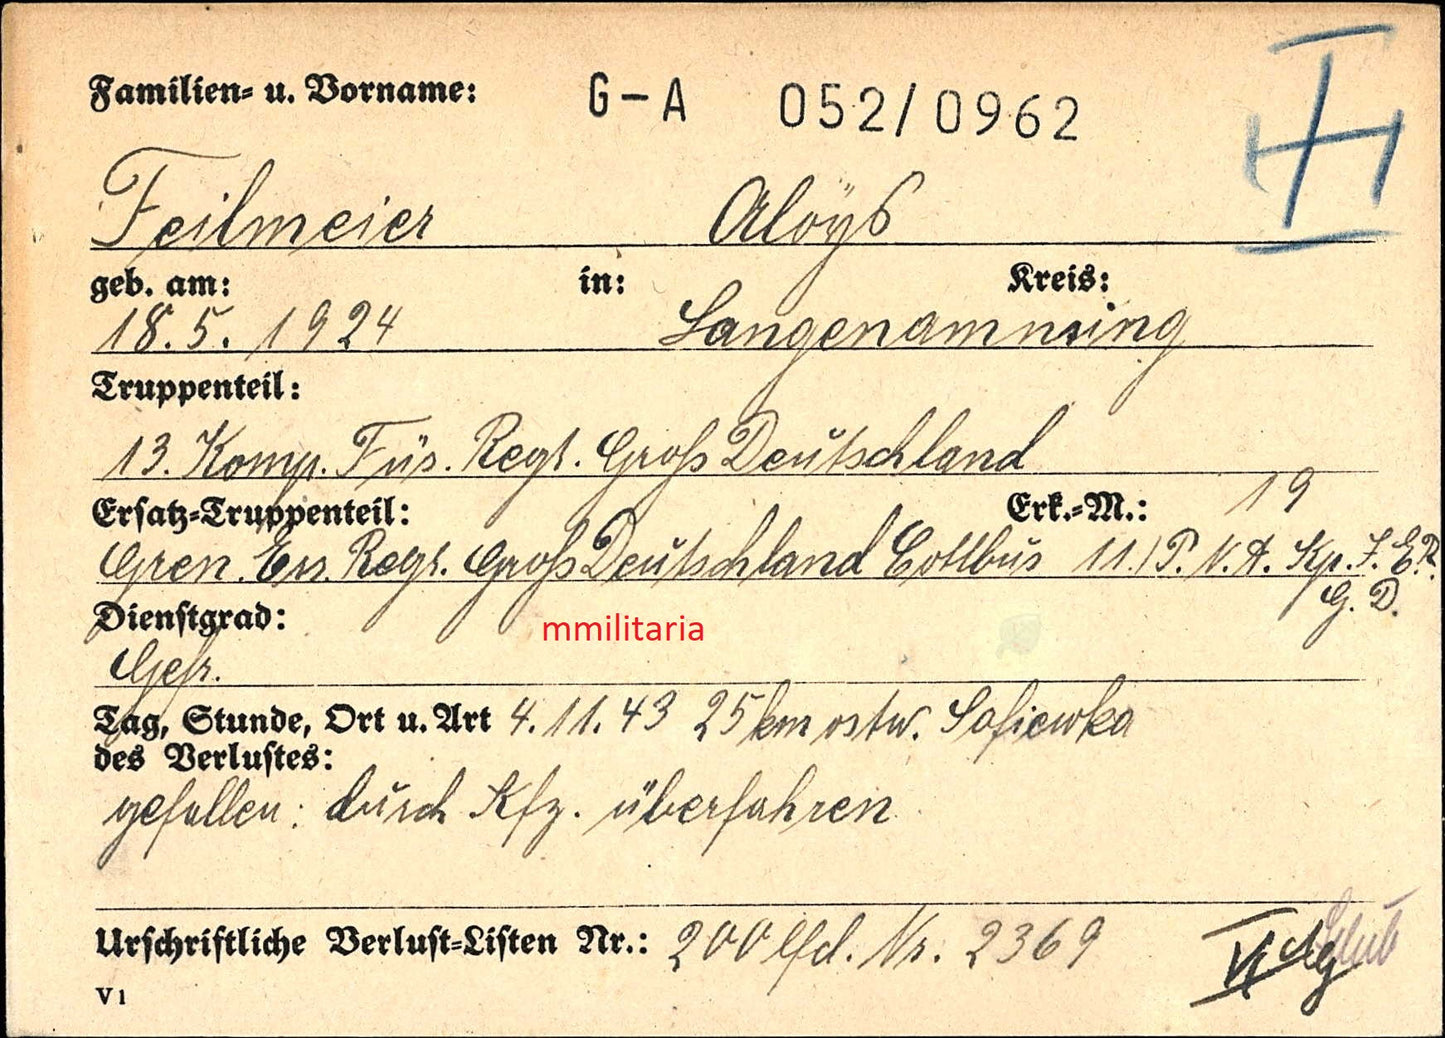 Familien- u. Vorname: G-A 052/0962
Feilmeier Aloÿs
geb. am: in: Kreis:
18.5.1924 Langenamming
Truppenteil:
13. Komp. Füs. Regt. Groß Deutschland
Ersatz-Truppenteil: Erk.-M.: 19
Gren. Ers. Regt. Groß Deutschland Cottbus 11./P. V. A. Kp. I. E. R.
G. D.
Dienstgrad:
mmilitaria
Gefr.
Tag, Stunde, Ort u. Art 4.11.43 25 km ostw. Sofiewka
des Verlustes:
gefallen: durch Kfz. überfahren
Urschriftliche Verlust-Listen Nr.: 200 lfd. Nr. 2369
V1